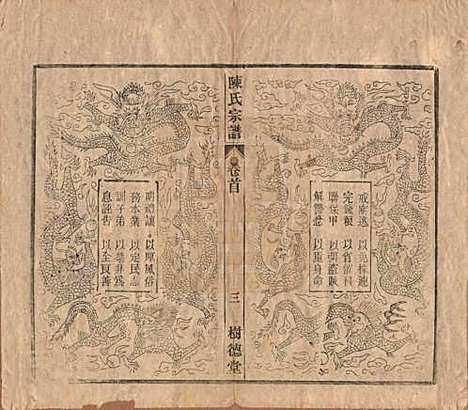 戒匿逃 以免株連
完錢糧 以省催科
聯保甲 以弭盜賊
解讐忿 以重身命
陳氏宗譜 卷首 三 樹德堂
明禮讓 以厚風俗
務本業 以定民志
訓子弟 以禁非為
息誣告 以全良善